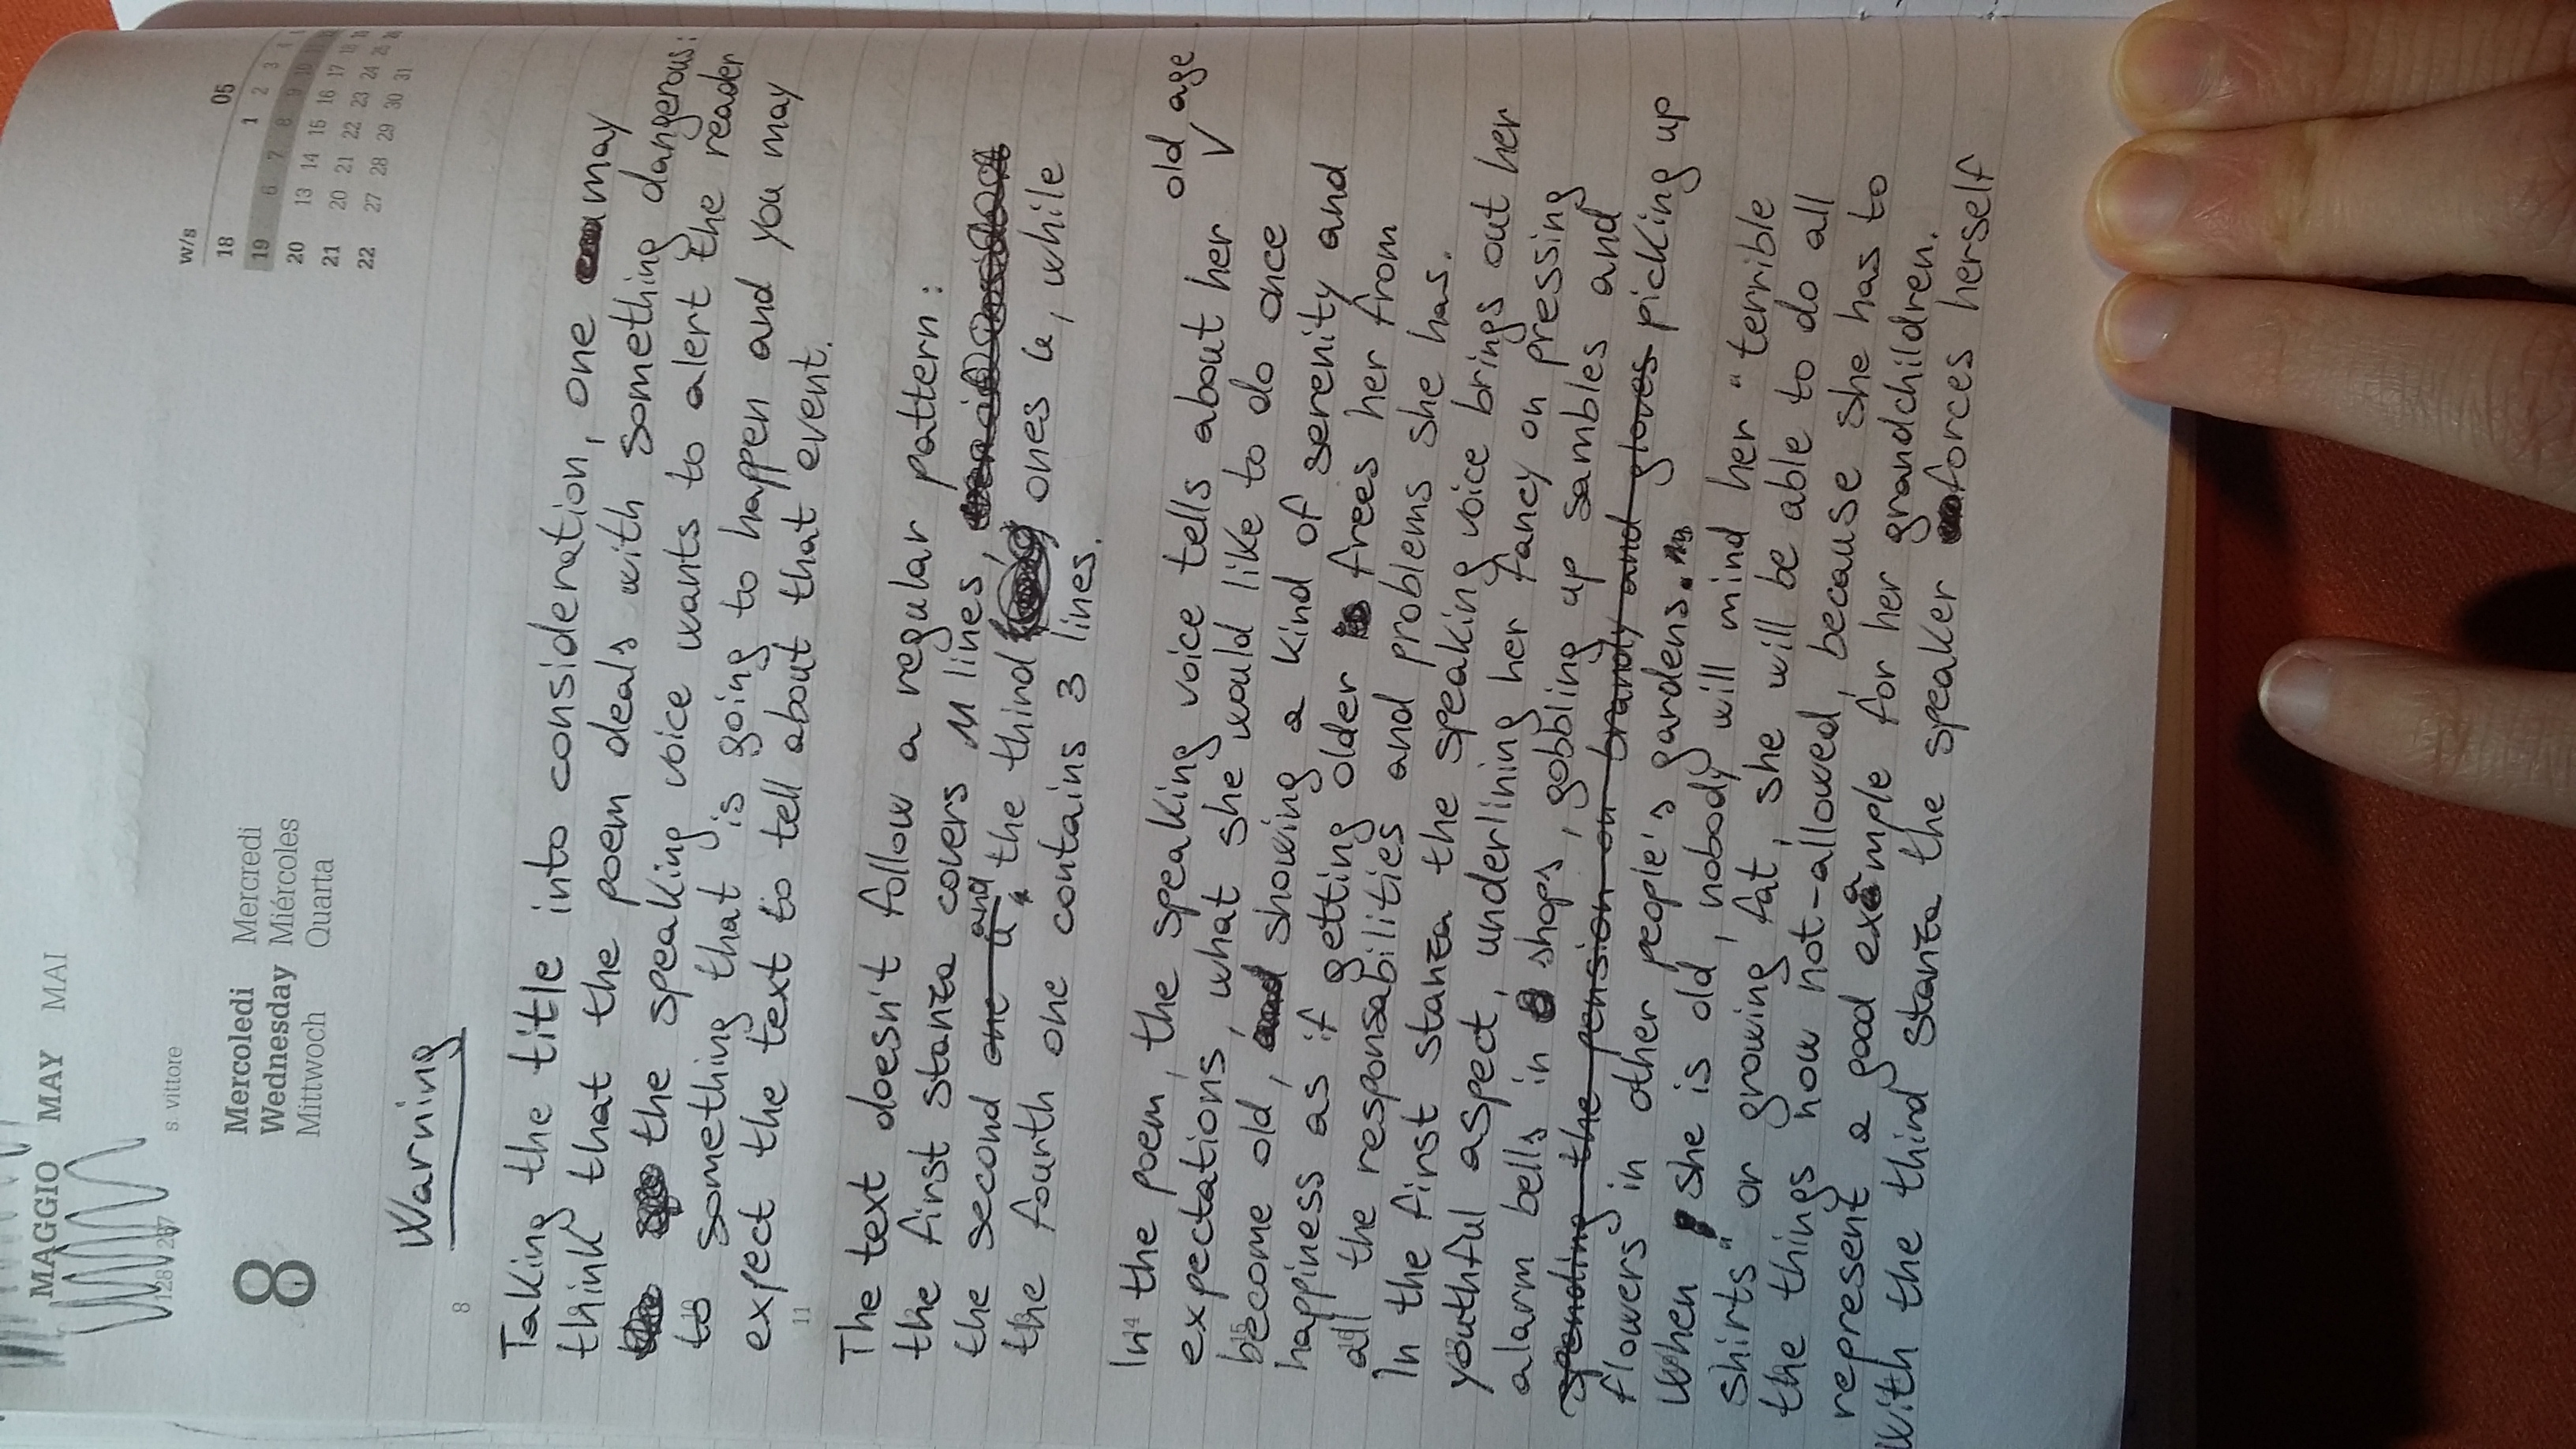 MAGGIO MAY MAI
128 | 237
s. vittore
8
Mercoledì Mercredi
Wednesday Miércoles
Mittwoch Quarta
w/s 05
18 1 2 3 4 5
19 6 7 8 9 10 11 12
20 13 14 15 16 17 18 19
21 20 21 22 23 24 25 26
22 27 28 29 30 31
Warning
8
Taking the title into consideration, one may
think that the poem deals with something dangerous:
the speaking voice wants to alert the reader
to something that is going to happen and you may
expect the text to tell about that event.
11
The text doesn't follow a regular pattern:
the first stanza covers 11 lines,
the second one 4 and the third ones 4, while
the fourth one contains 3 lines.
14
In the poem, the speaking voice tells about her old age
expectations, what she would like to do once
become old, showing a kind of serenity and
happiness as if getting older frees her from
all the responsabilities and problems she has.
In the first stanza the speaking voice brings out her
youthful aspect, underlining her fancy on pressing
alarm bells in shops, gobbling up sambles and
spending the pension on brandy and gloves picking up
flowers in other people's gardens.
When she is old, nobody will mind her "terrible
shirts" or growing fat, she will be able to do all
the things now not-allowed, because she has to
represent a good example for her grandchildren.
With the third stanza the speaker forces herself